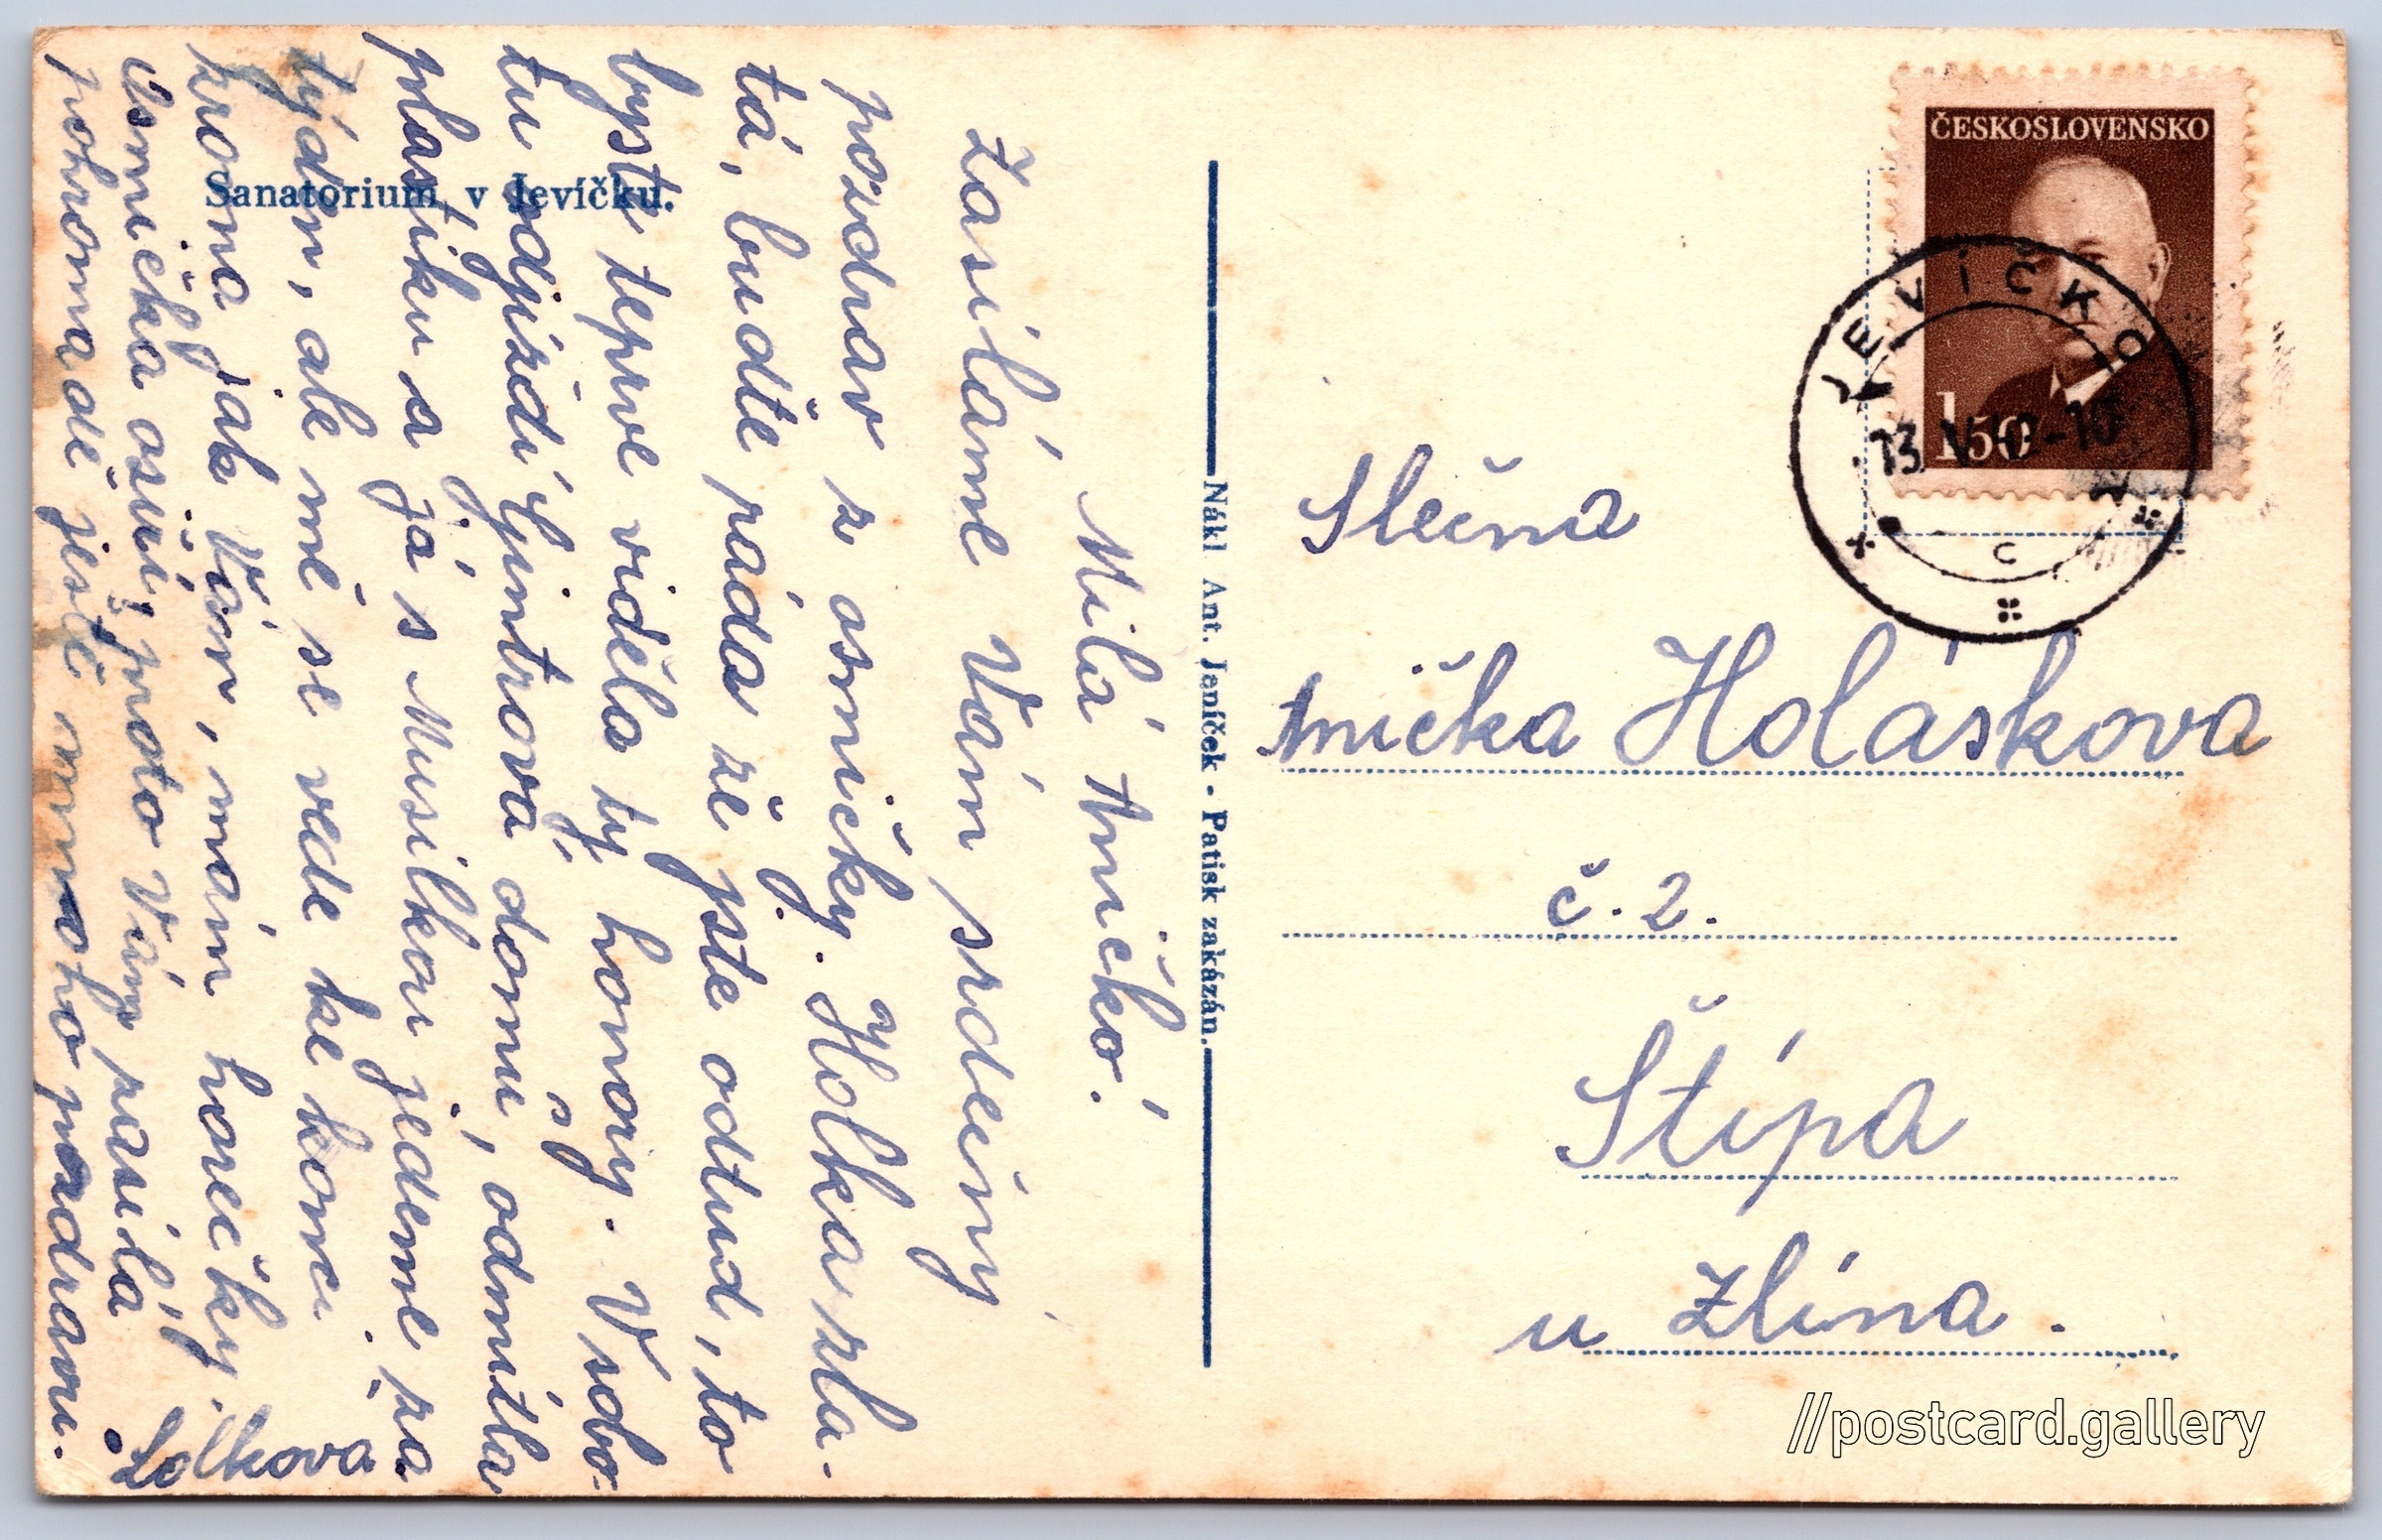 Sanatorium v Jevíčku.
Milá Aničko!
Zasíláme Vám srdečný
pozdrav z osmičky. Holka zla-
tá, buďte ráda že jste odtud, to
byste teprve viděla ty hony. V sobo-
tu odjíždí Gintrová domů, odmítla
plastiku a já s Musilkou jedeme za
týden, ale mě se vede ke konci
zrovna jak Vám, mám horečky.
Osmička osiří, proto Vám zasílá
pohromadě ještě mnoho pozdravů.
Nákl. Ant. Jeníček - Patisk zakázán.
ČESKOSLOVENSKO
1.50
JEVÍČKO
13. -10
c
Slečna
Anička Holáskova
č. 2.
Štípa
u Zlína.
//postcard.gallery